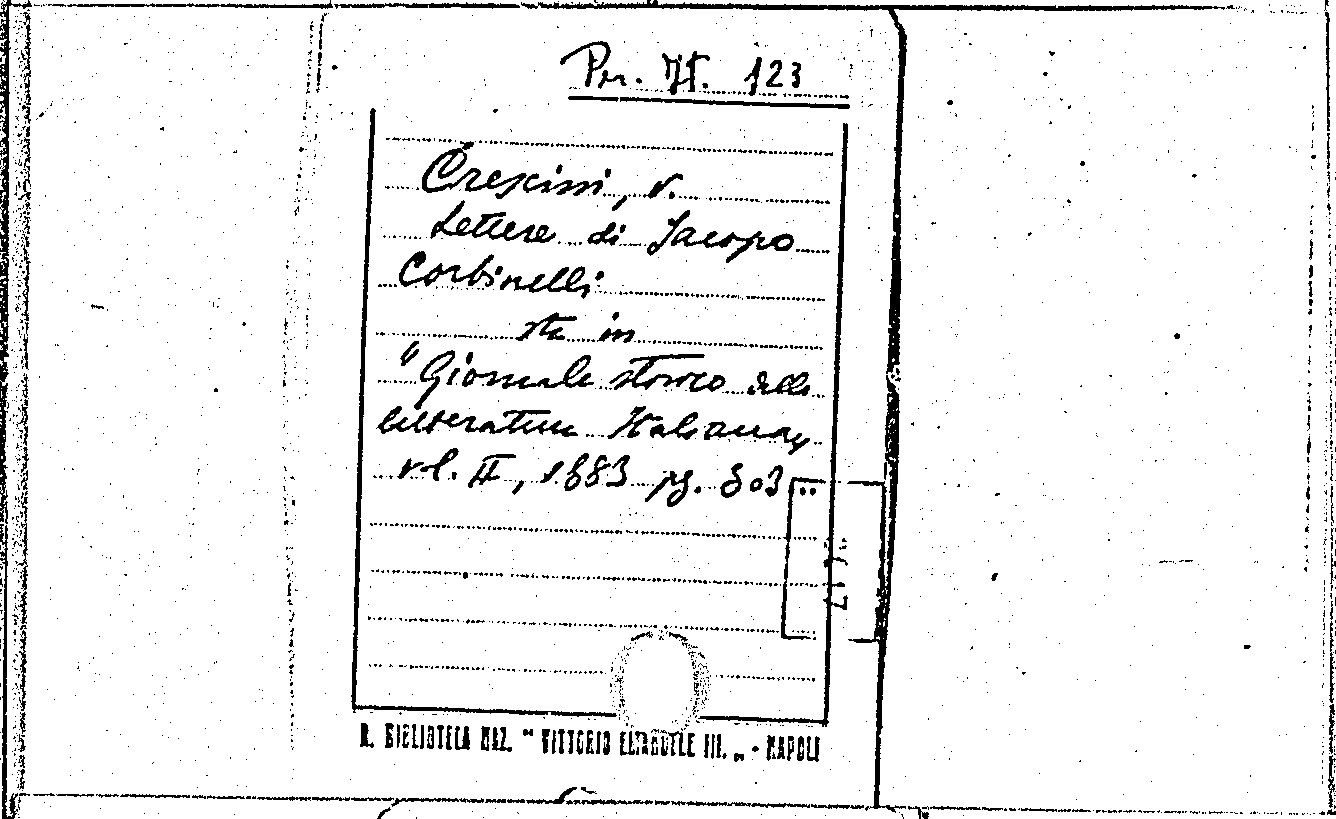 Per. It. 123
Crescini, V.
Lettere di Jacopo
Corbinelli
sta in
"Giornale storico della
letteratura Italiana,
vol. II, 1883 pg. 303...
R. BIBLIOTECA NAZ. " VITTORIO EMANUELE III. „ - NAPOLI